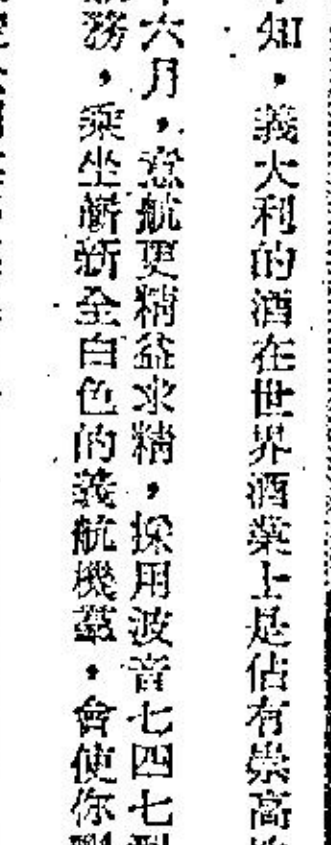 知，義大利的酒在世界酒業上是佔有崇高
六月，意航更精益求精，採用波音七四七
務，乘坐嶄新全白色的義航機羣，會使你